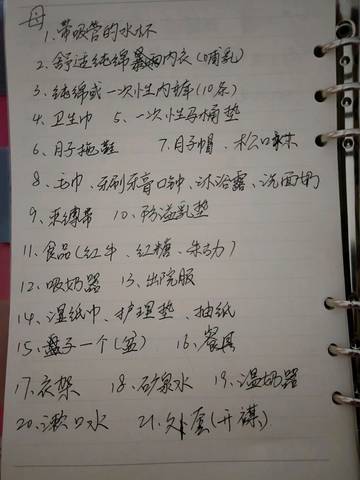 母
1. 带吸管的水杯
2. 舒适纯绵内衣(哺乳)
3. 纯绵或一次性内裤(10条)
4. 卫生巾 5. 一次性马桶垫
6. 月子拖鞋 7. 月子帽、松口袜
8. 毛巾、牙刷牙膏口钟、沐浴露、洗面奶
9. 束缚带 10. 防溢乳垫
11. 食品(红牛、红糖、朱古力)
12. 吸奶器 13. 出院服
14. 湿纸巾、护理垫、抽纸
15. 盘子一个(盆) 16. 餐具
17. 衣架 18. 矿泉水 19. 温奶器
20. 漱口水 21. 外套(开襟)